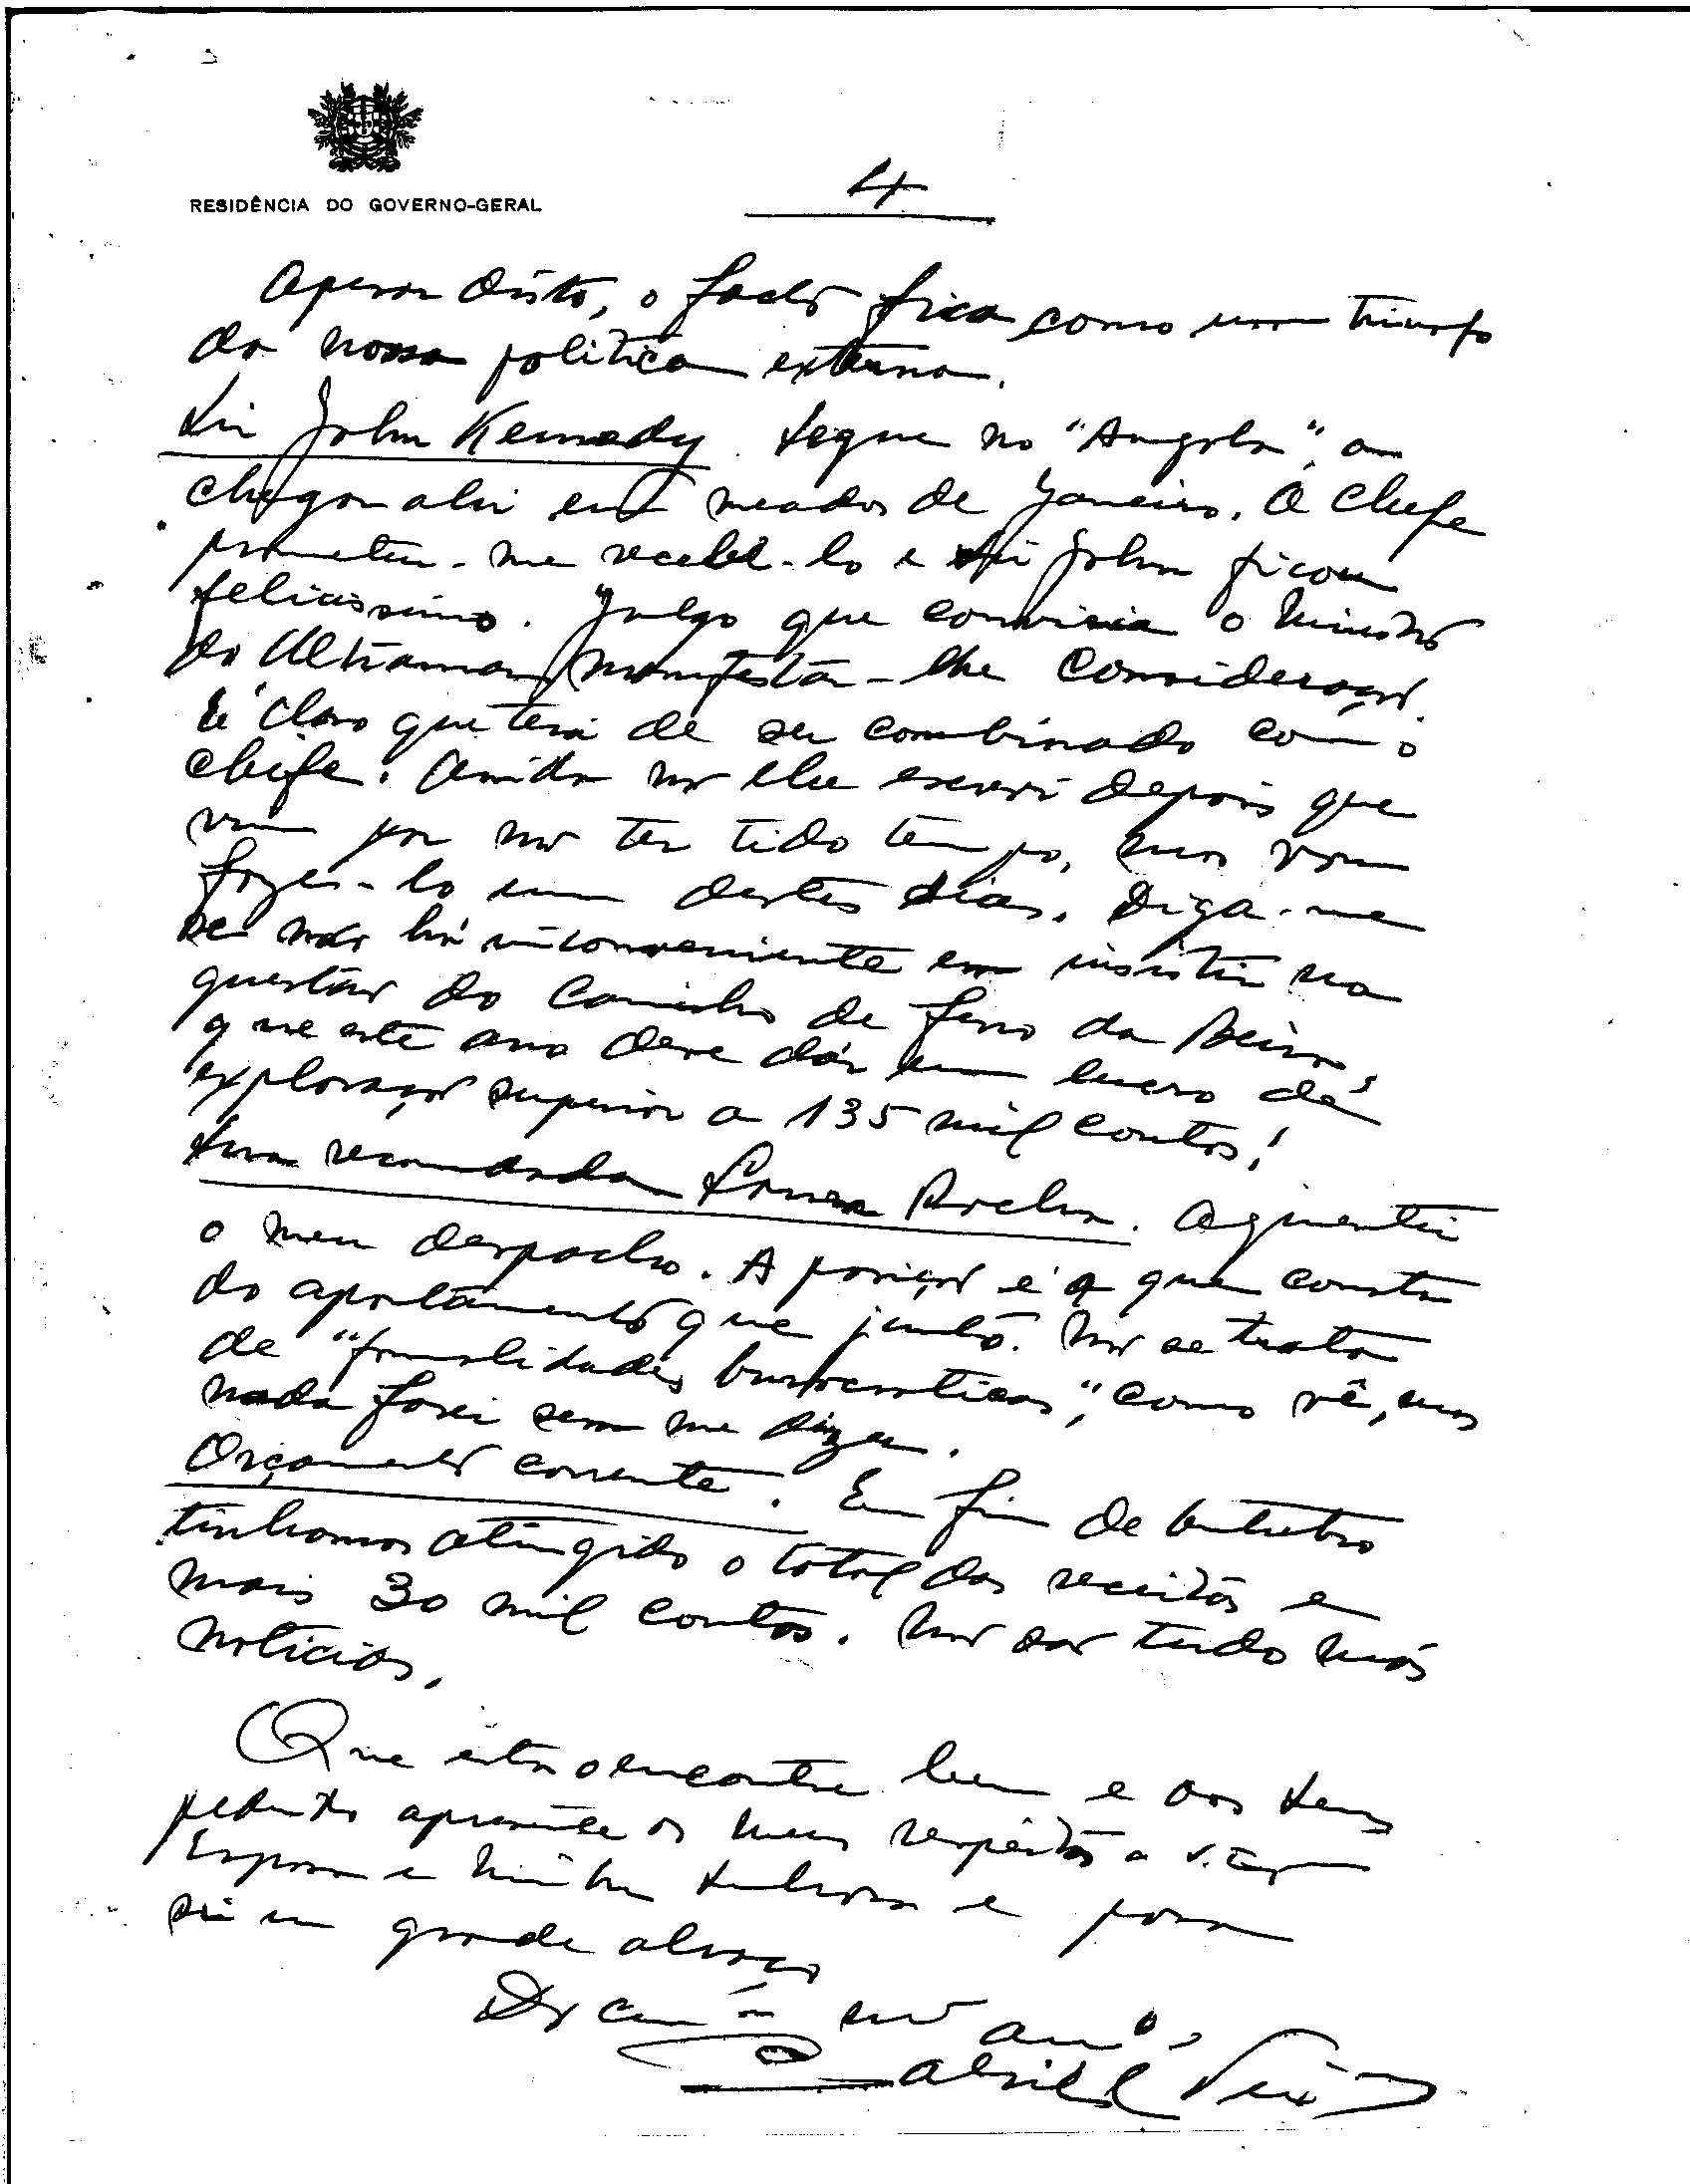 RESIDÊNCIA DO GOVERNO-GERAL
4
Apesar disto, o facto fica como um triunfo
da nossa politica externa.
Sir John Kennedy. Segue no "Angola", a
chegar ahi em meados de Janeiro. O Chefe
prometeu-me recebê-lo e Sir John ficou
felicissimo. Julgo que conviria o Ministro
do Ultramar manifestar-lhe consideração.
É claro que terá de ser combinado com o
Chefe. Ainda não lhe escrevi depois que
vim por não ter tido tempo, mas vou
fazer-lo um destes dias. Diga-me
se não há inconveniente em insistir na
questão do Caminho de ferro da Beira,
que este ano deve dár um lucro de
exploração superior a 135 mil contos!
Sua recomendada Rocha. Aguentei
o meu despacho. A posição é a que consta
do apontamento que junto. Não se trata
de "formalidades burocraticas", como vê, mas
nada farei sem me dizer.
Orçamento corrente. Em fim de Outubro
tinhamos atingido o total das receitas e
mais 30 mil contos. Não são tudo más
noticias.
Que esta o encontre bem e aos seus
pedindo apresente os meus respeitos a
Esposa e minha Senhora e para
si um grande abraço
am.º
Gabriel Teixª